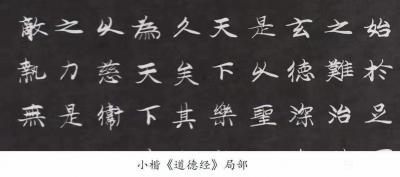 始於足
之難治
玄德深
是以聖
天下樂
久矣其
為天下
以慈衛
之力是
敵執無
小楷《道德经》局部